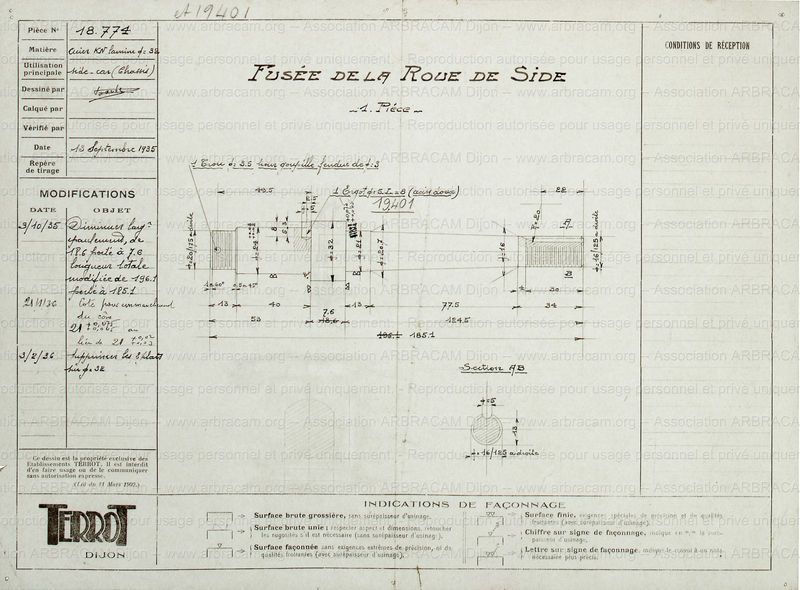 19401
Pièce Nº 18.774
Matière Acier KN laminé φ= 32
Utilisation principale side-car (Chassis)
Dessiné par
Calqué par
Vérifié par
Date 13 Septembre 1935
Repère de tirage
MODIFICATIONS
DATE OBJET
3/10/35 Diminuer
épaulement, de
18.6 porté à 7.6
longueur totale
modifiée de 196.1
porté à 185.1
21/1/36 Cote pour emmanchement
du cône
21 au
lieu de 21
3/2/36 Supprimer les 2 plats
sur φ= 32
Ce dessin est la propriété exclusive des
Etablissements TERROT, il est interdit
d'en faire usage ou de le communiquer
sans autorisation expresse.
(Loi du 11 Mars 1902.)
TERROT
DIJON
FUSÉE DE LA ROUE DE SIDE
1. Pièce
CONDITIONS DE RÉCEPTION
1 Trou φ= 3.5 pour goupille fendue de φ= 3
1 Ergot φ= 5. L= 8 (acier doux)
19401
22
φ= 20/175 à droite
φ= 24
8
φ= 32
φ= 21
φ= 20.7
φ= 16
A
B
φ= 16/125 à droite
4 30
13 40 13 77.5 34
7.6
53 18.6 124.5
196.1 185.1
Section AB
φ=5
13
φ= 16/125 à droite
INDICATIONS DE FAÇONNAGE
Surface brute grossière, sans surépaisseur d'usinage.
Surface brute unie : respecter aspect et dimensions, retoucher
les rugosités s'il est nécessaire (sans surépaisseur d'usinage).
Surface façonnée sans exigences extrêmes de précision, ni de
qualités frottantes (avec surépaisseur d'usinage).
Surface finie, exigences spéciales de précision et de qualités
frottantes (avec surépaisseur d'usinage).
Chiffre sur signe de façonnage, indique en m/m la surépaisseur d'usinage.
Lettre sur signe de façonnage, indique le renvoi à une note
nécessaire plus précis.
www.arbracam.org – Association ARBRACAM Dijon – www.arbracam.org – Association ARBRACAM Dijon
Reproduction autorisée pour usage personnel et privé uniquement.